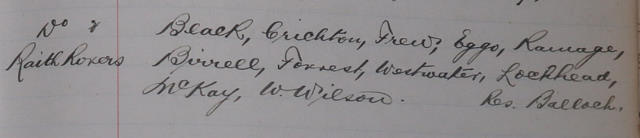 Do v Black, Crichton, Frew, Eggo, Ramage,
Raith Rovers Birrell, Forrest, Westwater, Lochhead,
McKay, W. Wilson. Res. Balloch.